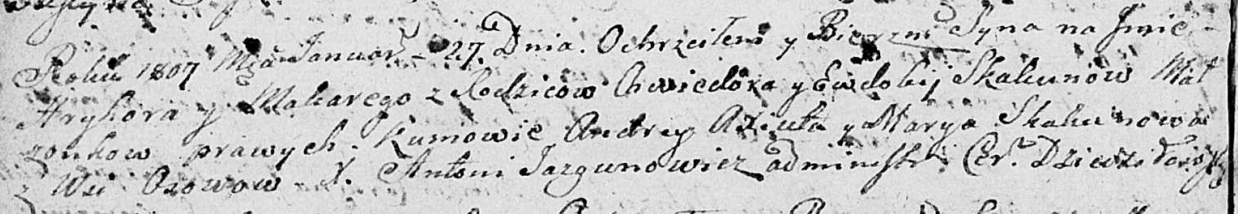 Roku 1807 Mca Januar 27. Dnia. Ochrzciłem y Bierzm Syna na Jmie
Hryhora y Makarego z Rodzicow Chwiedora y Ewdokij Skakunow Mał
zonkow prawych. Kumowie Andrey Azeuła y Marya Skakunowa
z Wsi Osowow X. Antoni Jazgunowicz administr: Cer.